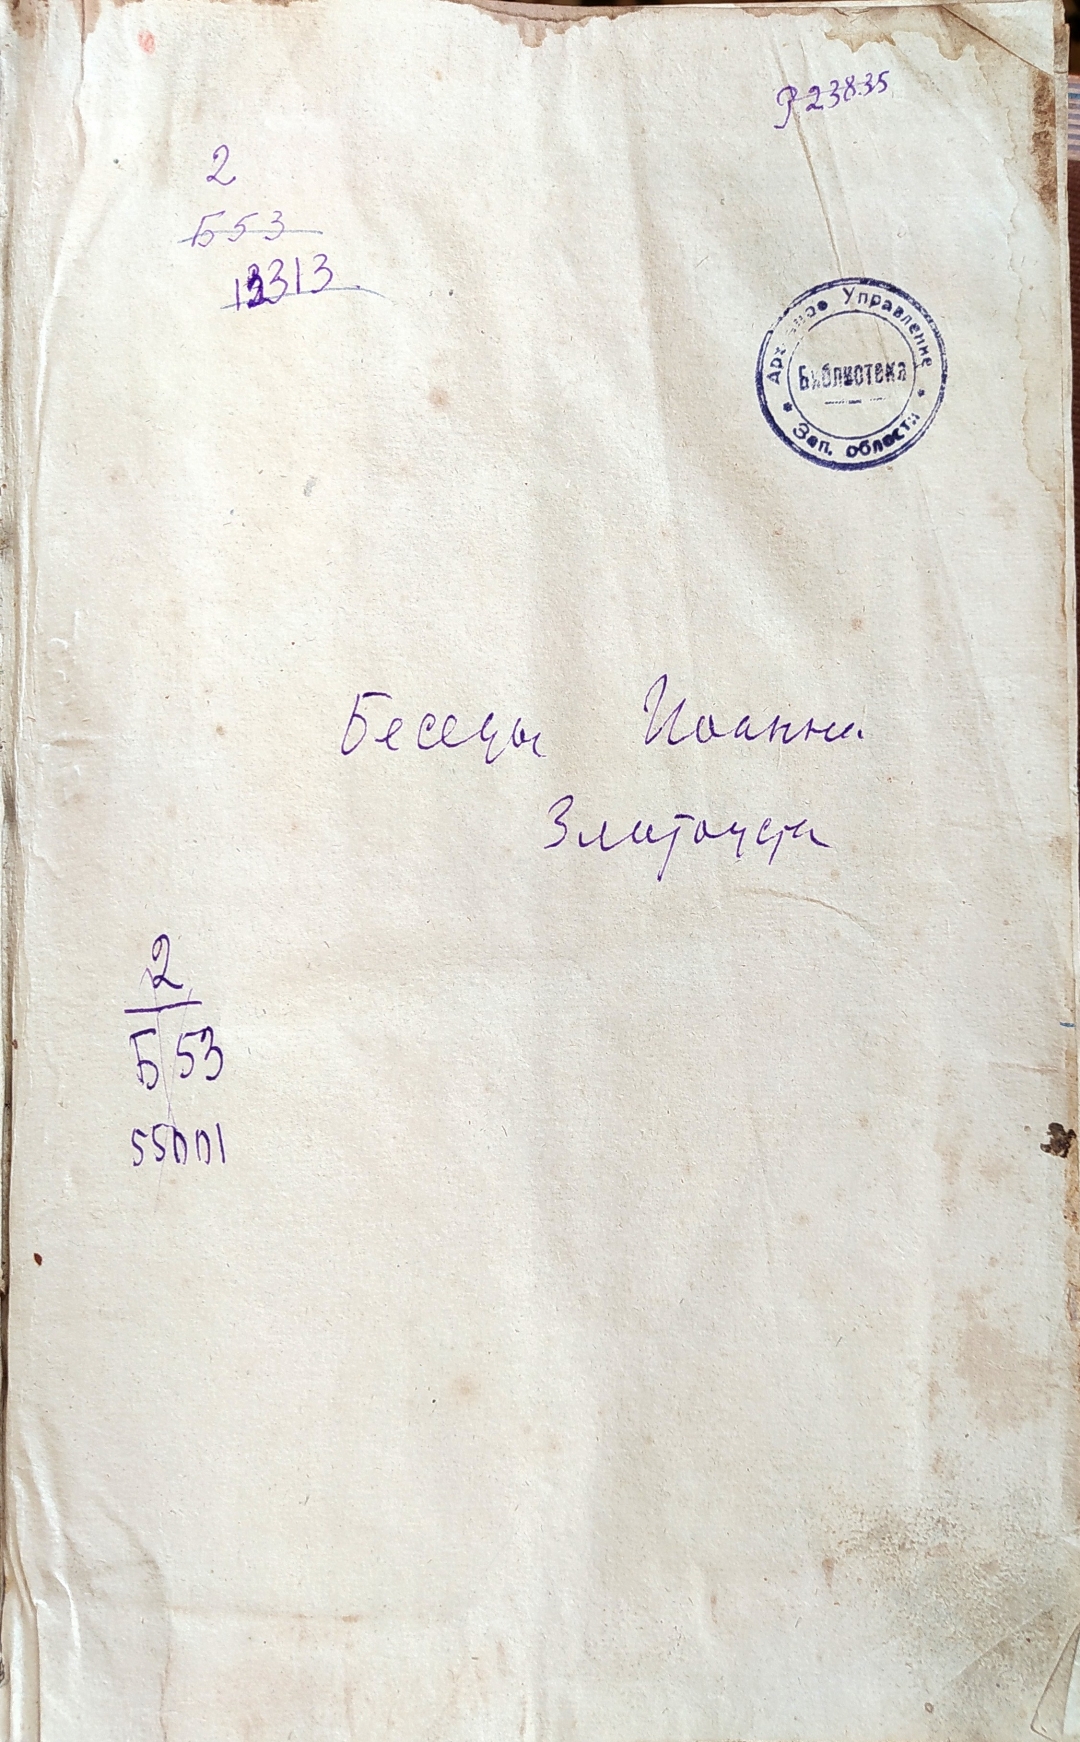 Р 23835
2
Б53
13313
Архивное Управление
Библиотека
* Зап. области *
Беседы Иоанна
Златоуста
2
Б 53
55001